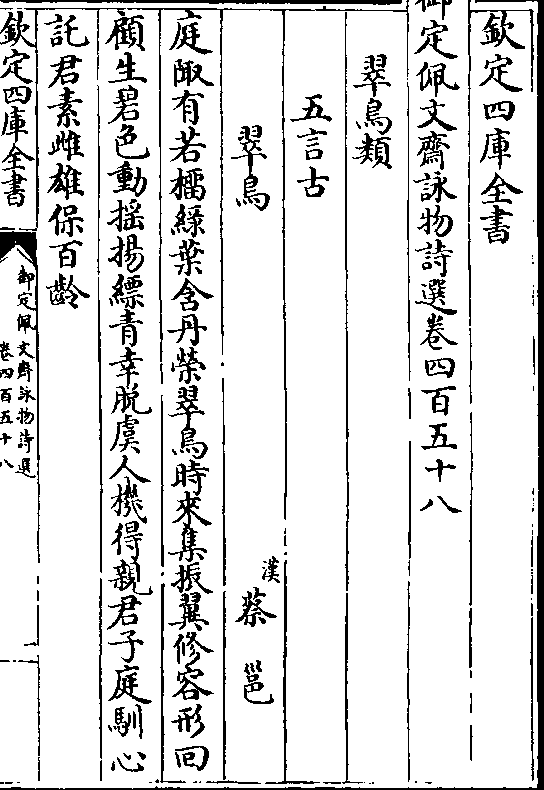 欽定四庫全書
御定佩文齋詠物詩選卷四百五十八
翠鳥類
五言古
翠鳥　漢蔡邕
庭陬有若榴緑葉含丹榮翠鳥時來集振翼修容形回
顧生碧色動揺揚縹青幸脱虞人機得親君子庭馴心
託君素雌雄保百齡
欽定四庫全書
御定佩文齋詠物詩選
卷四百五十八
一